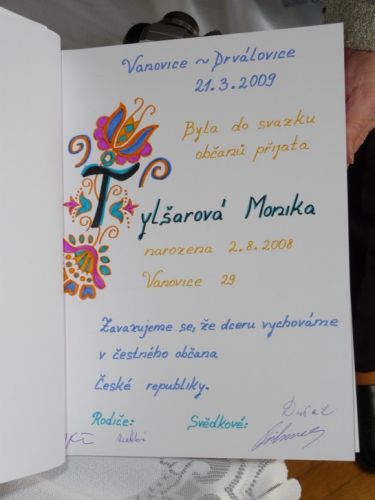 Vanovice ~ Drválovice
21.3.2009
Byla do svazku
občanů přijata
Tylšarová Monika
narozena 2.8.2008
Vanovice 29
Zavazujeme se, že dceru vychováme
v čestného občana
České republiky.
Rodiče: Svědkové: